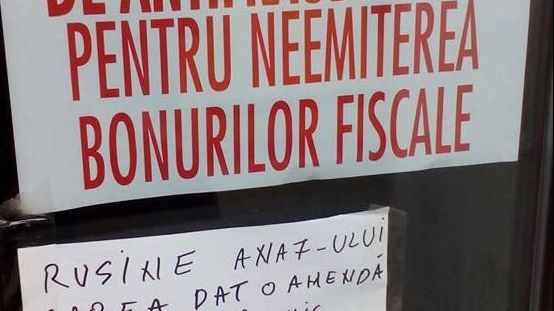 PENTRU NEEMITEREA
BONURILOR FISCALE
RUSINE ANAF-ULUI
DAT O AMENDĂ